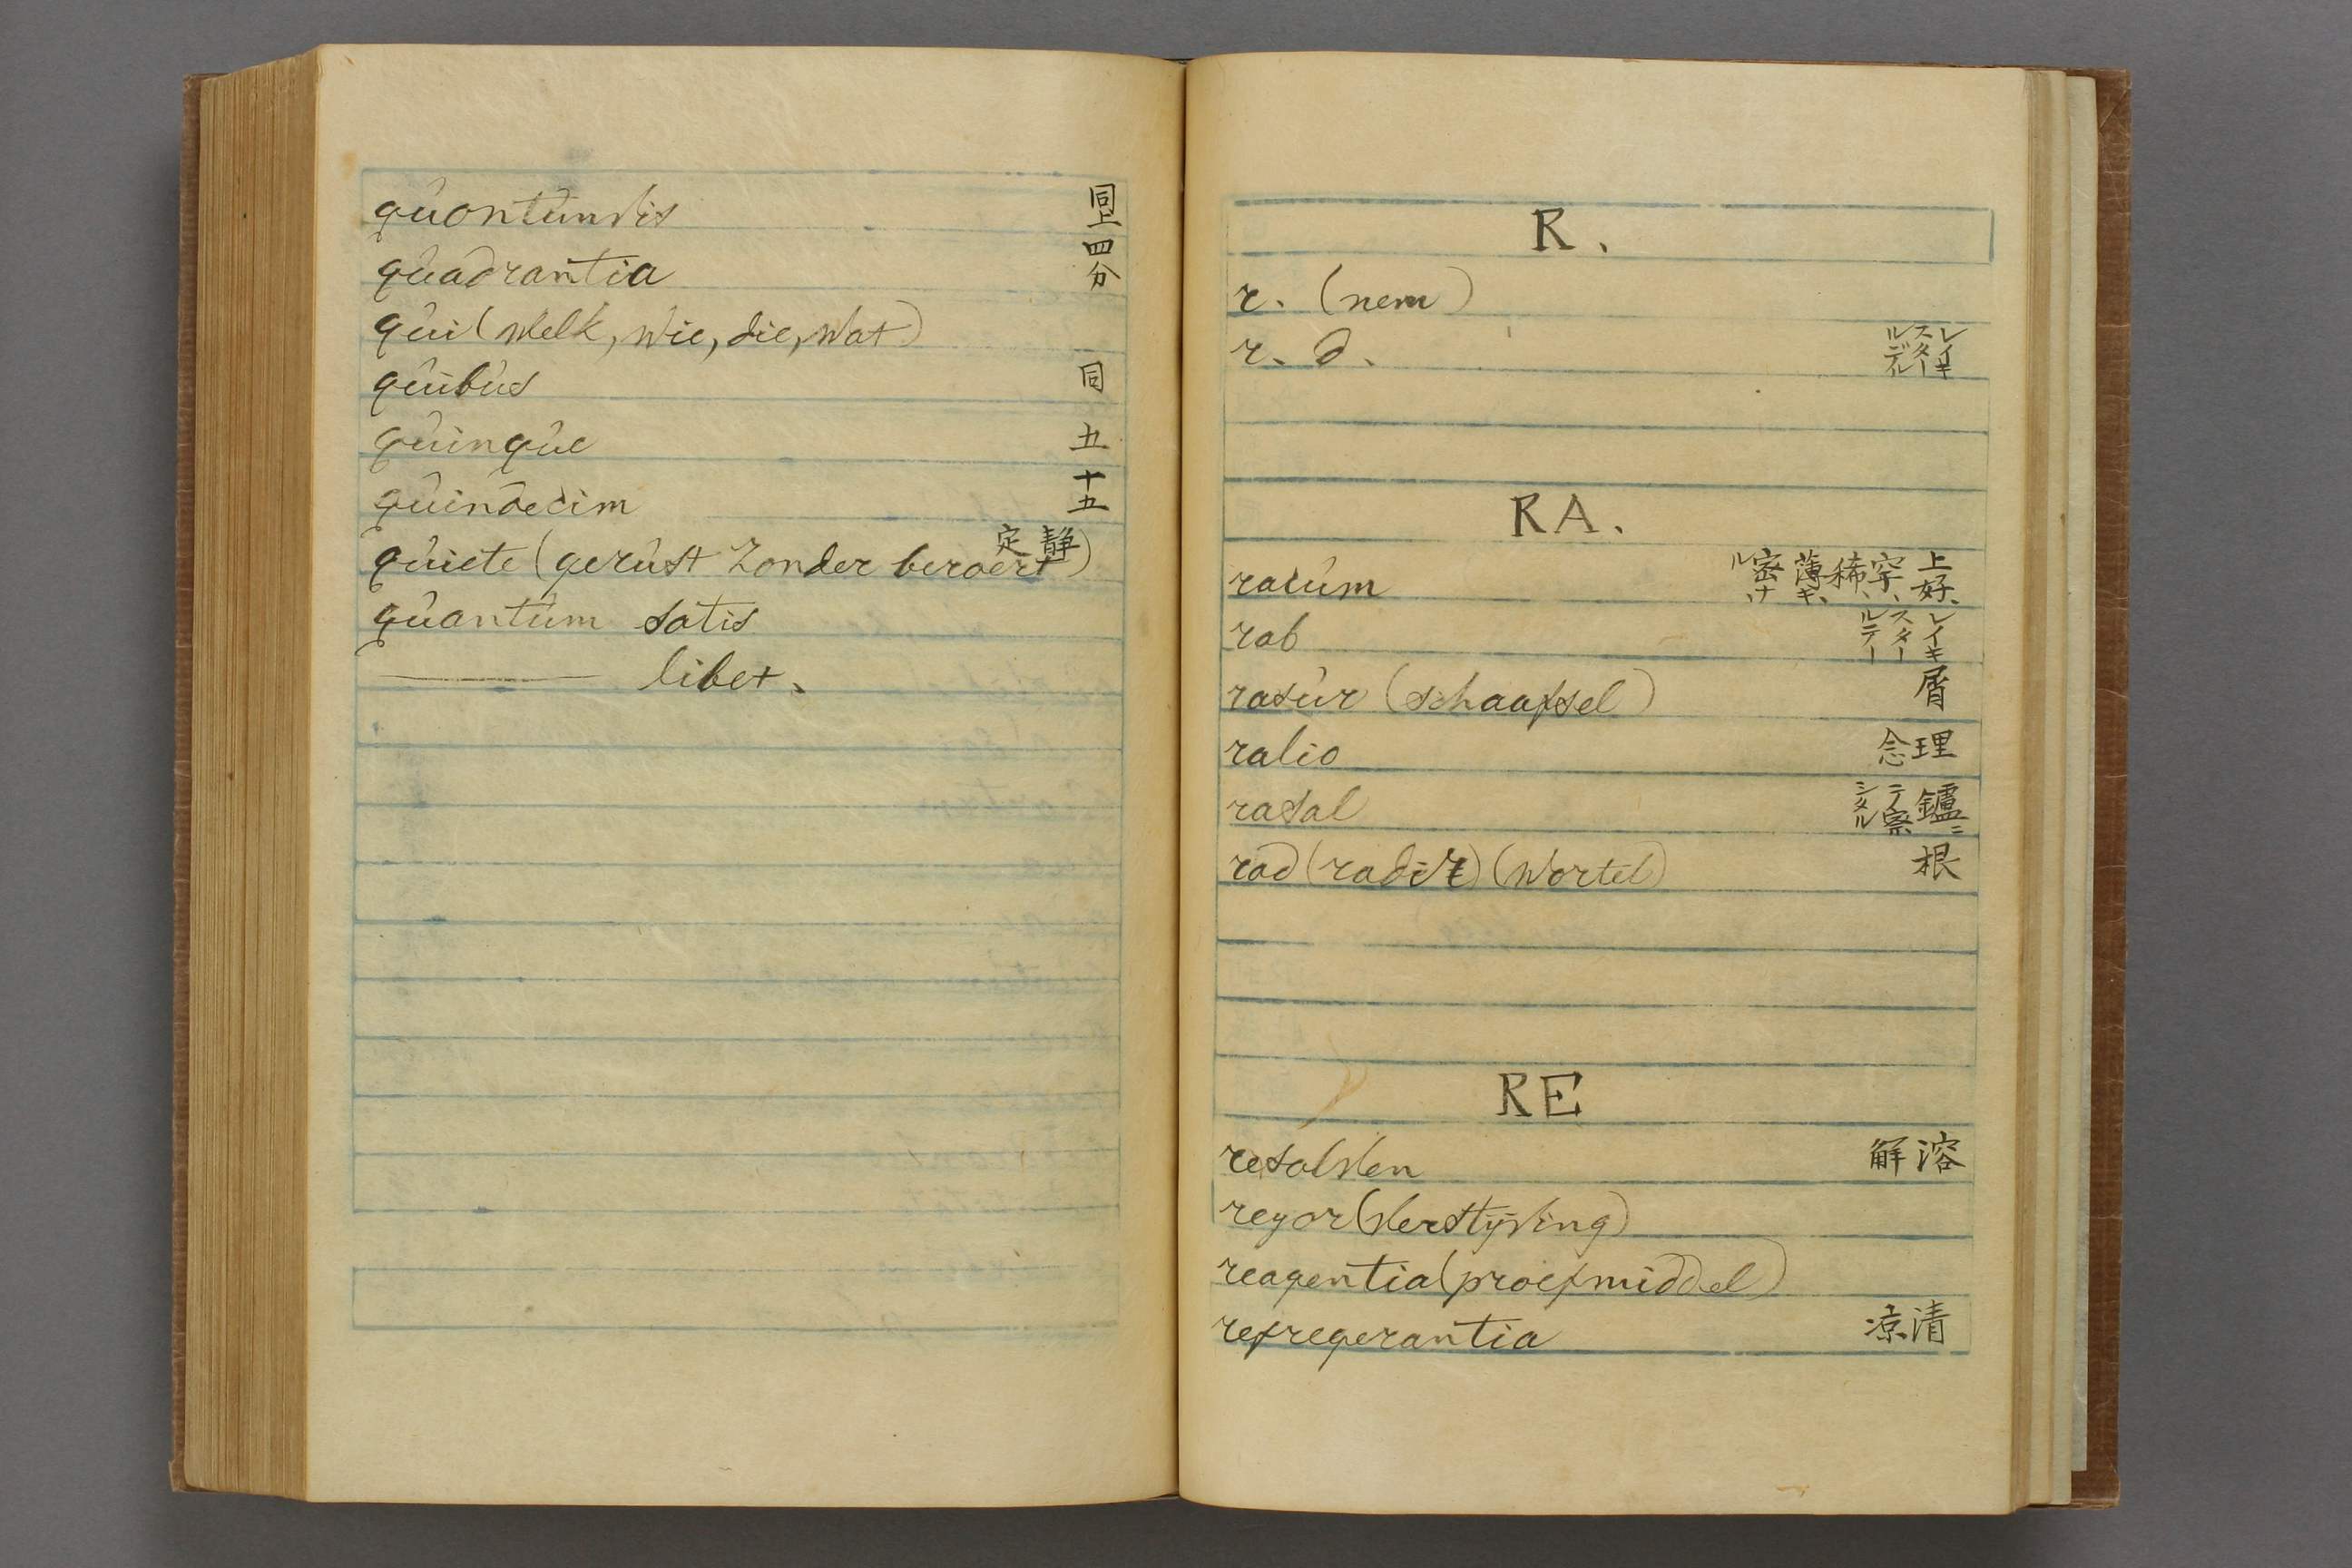 qûontûmvis 同上
qûadrantia 四分
qûi (welk, wie, die, wat)
qûibûs 同
qûinqûe 五
qûindecim 十五
qûiete (gerûst zonder beroert) 静定
qûantûm satis
——— libet.
R.
r. (nem)
r. d. レイキスタールデル
RA.
racûm 上好、穽、稀、薄キ、密ナル
rab レイキスタールテー
rasûr (schaafsel) 屑
ralio 理念
rasal 鑪ニテ
rad (radix) (wortel) 根
RE
resolven 溶解
reyor (verstijving)
reagentia (proefmiddel)
refregerantia 清凉